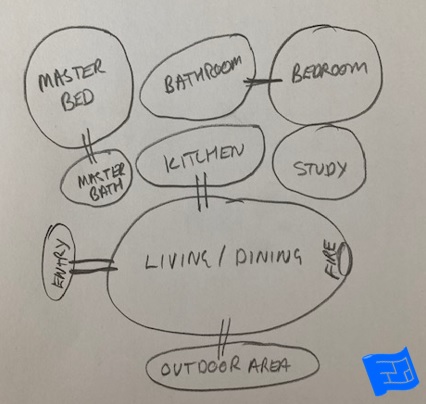 MASTER
BED
BATHROOM
BEDROOM
MASTER
BATH
KITCHEN
STUDY
ENTRY
LIVING / DINING
FIRE
OUTDOOR AREA